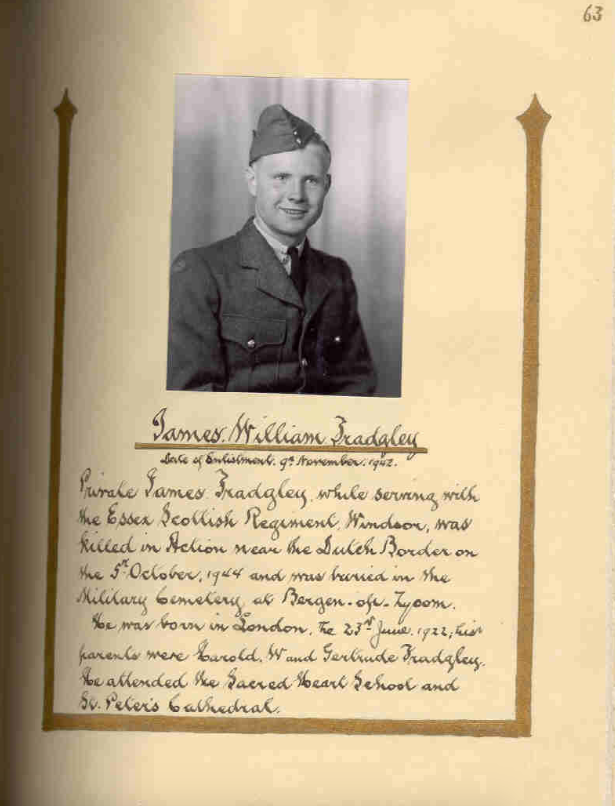 63
James. William Fradgley
Date of Enlistment. 9th November. 1942.
Private James Fradgley, while serving with
the Essex Scottish Regiment, Windsor, was
killed in Action near the Dutch Border on
the 5th October, 1944 and was buried in the
Military Cemetery at Bergen-op-Zoom.
He was born in London, the 23rd June 1922; his
parents were Harold. W and Gertrude Fradgley.
He attended the Sacred Heart School and
St. Peter's Cathedral.